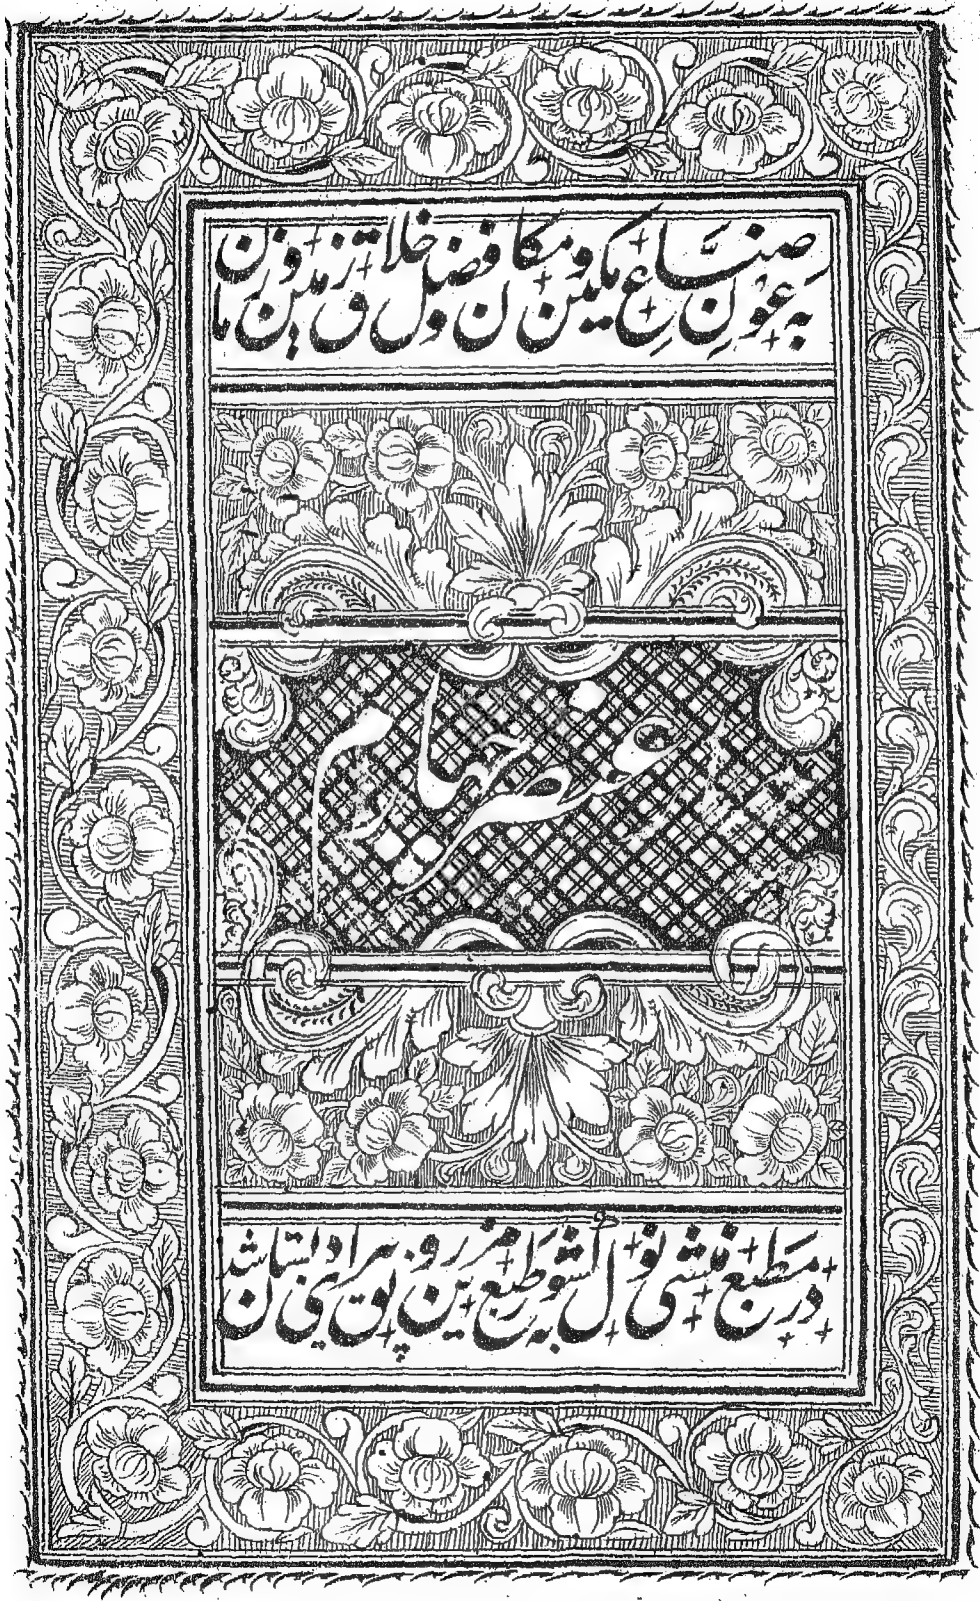 بہ عون صناع مکین و مکان و فضل خلاق زمین و زمان
عنصر چہارم
در مطبع منشی نول کشور طبع مزین و پرایق بستانی شدن